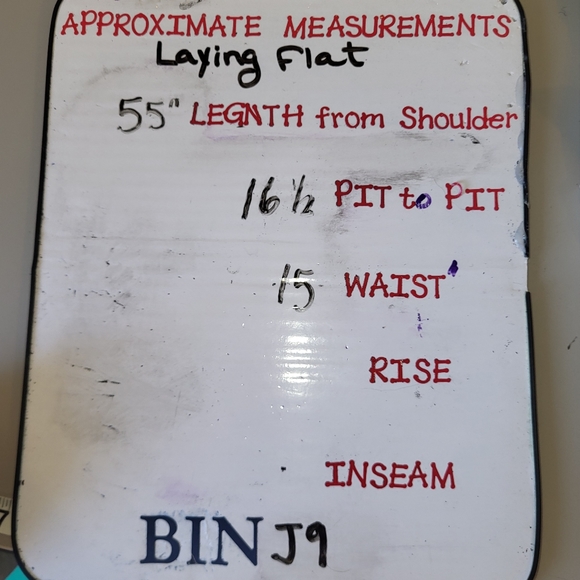 APPROXIMATE MEASUREMENTS
Laying Flat
55" LEGNTH from Shoulder
16 1/2 PIT to PIT
15 WAIST
RISE
INSEAM
BIN J9
7